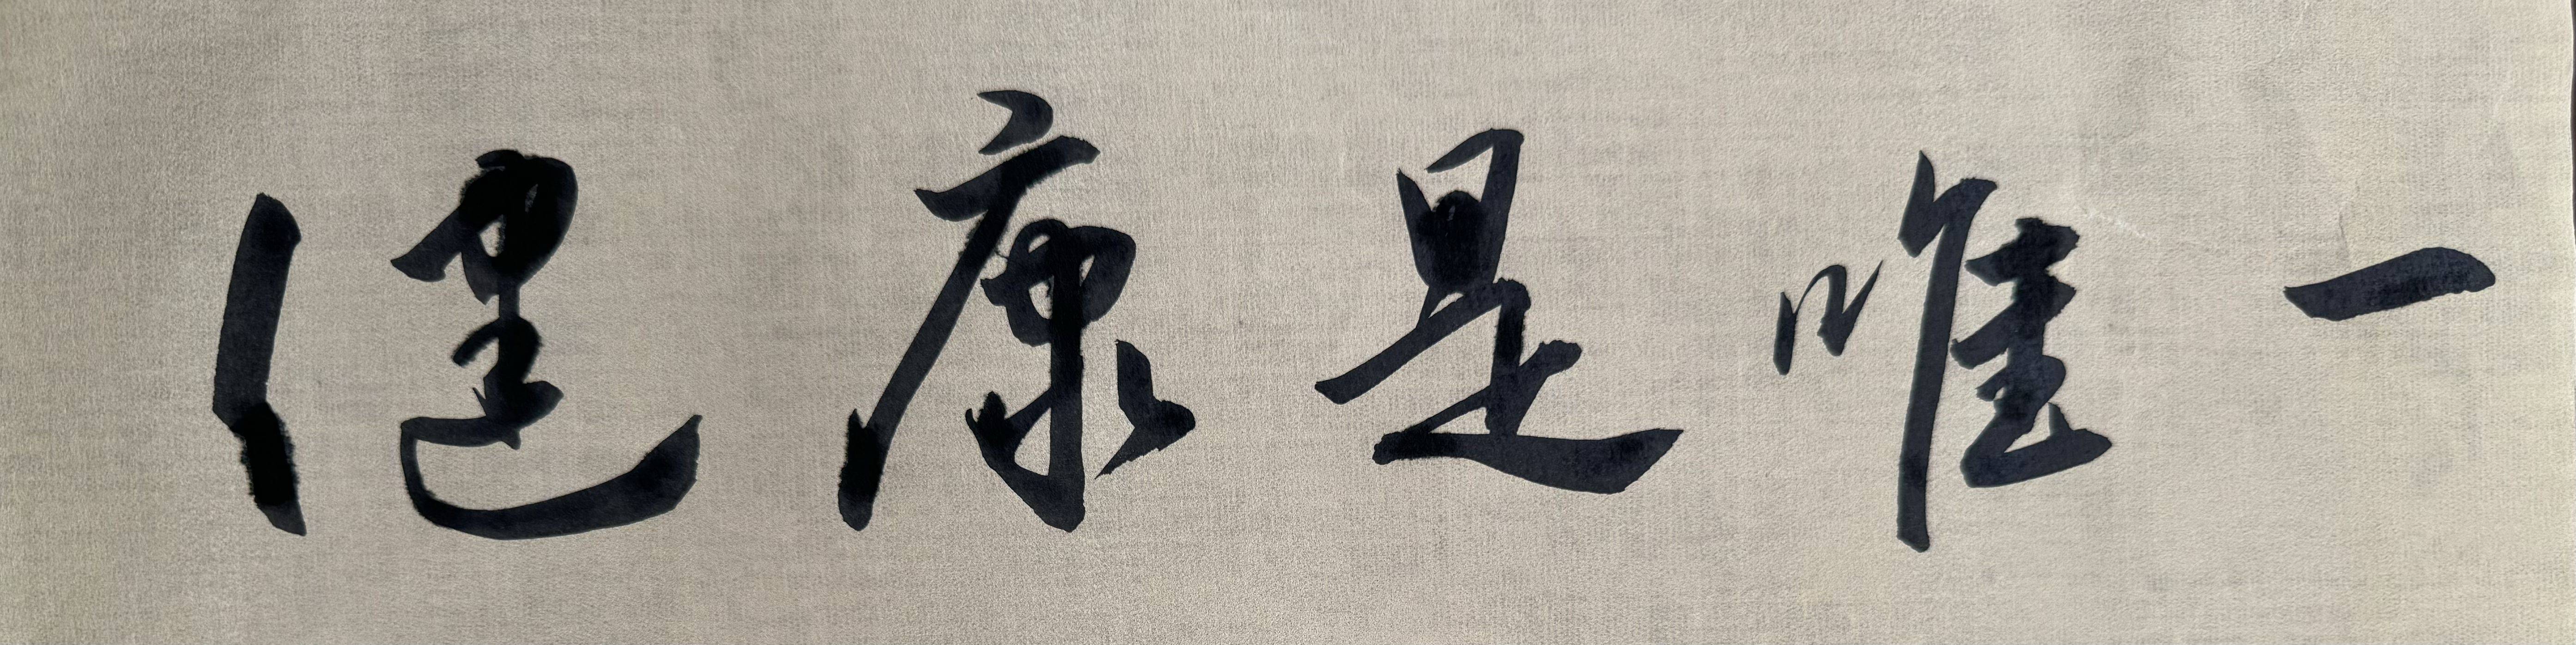 健康是唯一